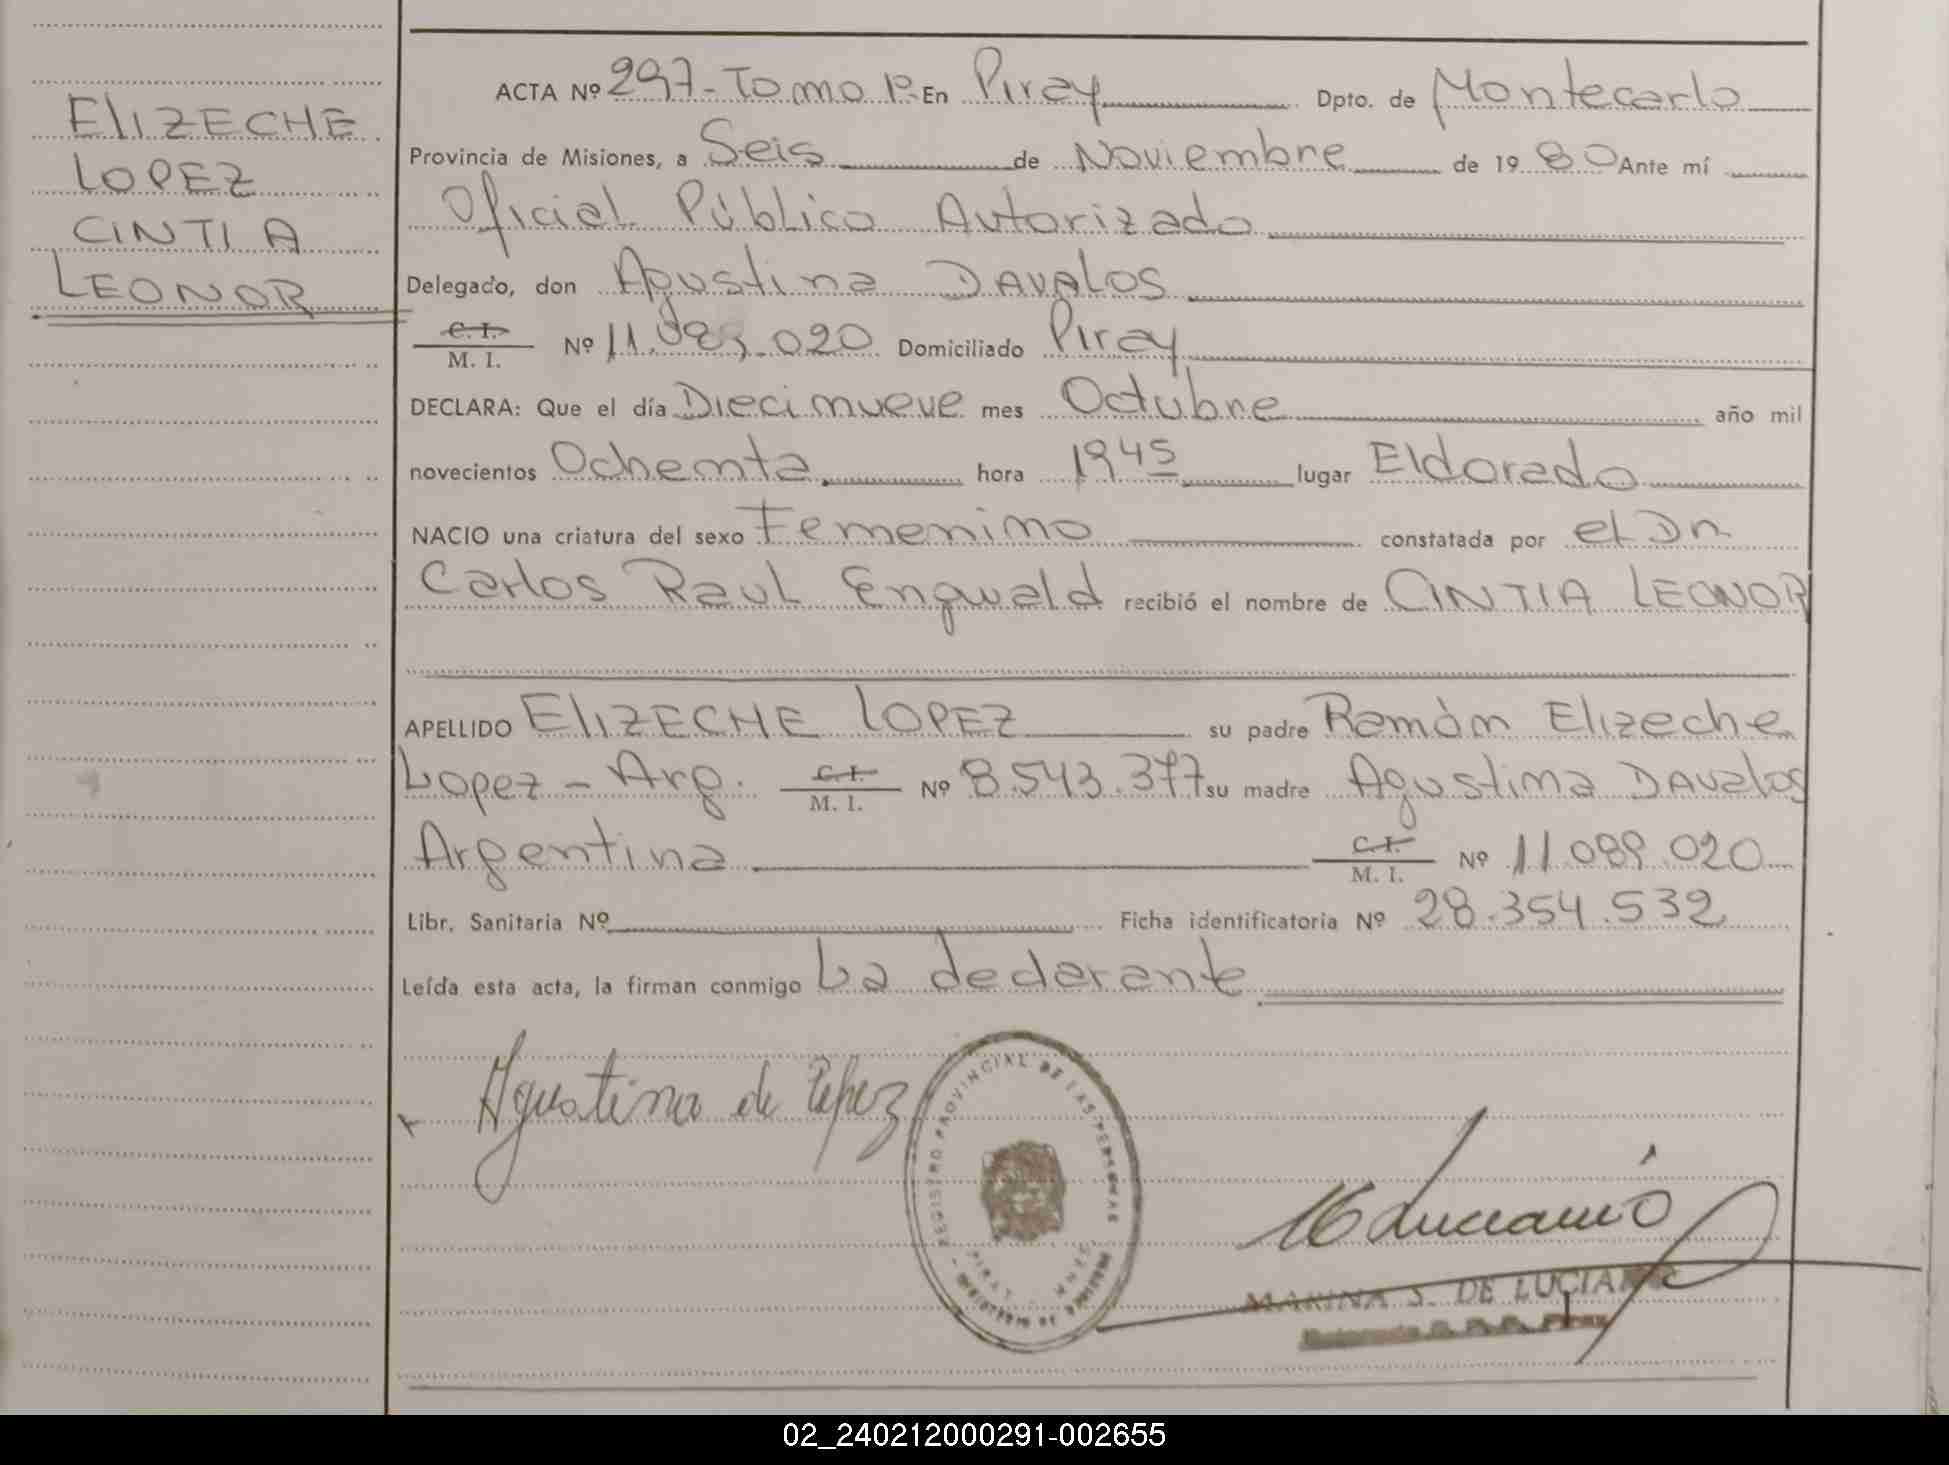 ELIZECHE
LOPEZ
CINTIA
LEONOR
ACTA Nº 297-Tomo 1º En Piray Dpto. de Montecarlo
Provincia de Misiones, a Seis de Noviembre de 19 80 Ante mí
Oficial Público Autorizado
Delegado, don Agustina DAVALOS
C. I.
M. I. Nº 11.089.020 Domiciliado Piray
DECLARA: Que el día Diecinueve mes Octubre año mil
novecientos Ochenta hora 1945 lugar Eldorado
NACIO una criatura del sexo Femenino constatada por el Dr.
Carlos Raul Engwald recibió el nombre de CINTIA LEONOR
APELLIDO ELIZECHE LOPEZ su padre Ramón Elizeche
Lopez - Arg. C. I. M. I. Nº 8.543.377 su madre Agustina DAvalos
Argentina C. I. M. I. Nº 11.089.020
Libr. Sanitaria Nº Ficha identificatoria Nº 28.354.532
Leída esta acta, la firman conmigo La declarante
Agustina de
REGISTRO PROVINCIAL DE LAS PERSONAS
PIRAY
MARINA S. DE LUCIANO
02_240212000291-002655